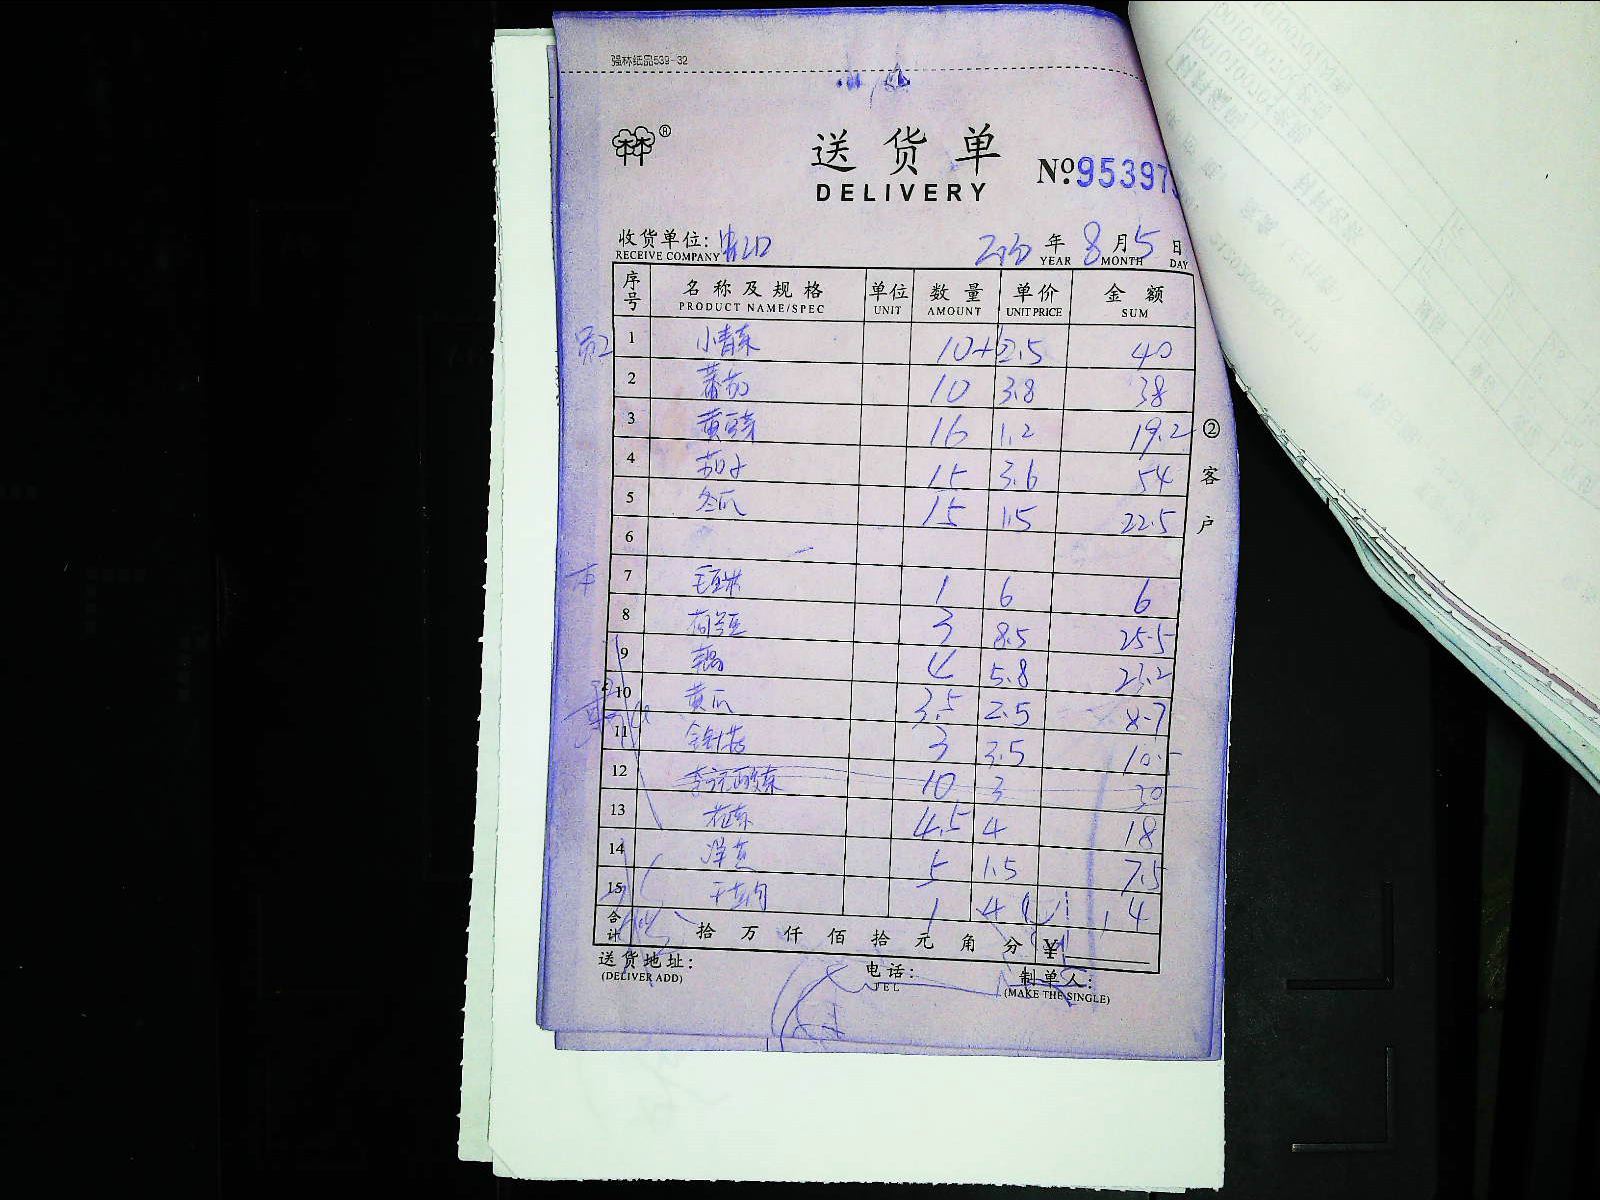 强林纸品539-32
®
送货单
DELIVERY
№95397
收货单位:
RECEIVE COMPANY
年 8 月 5 日
YEAR MONTH DAY
序号 名称及规格 单位 数量 单价 金额
PRODUCT NAME/SPEC UNIT AMOUNT UNIT PRICE SUM
1 小青菜 10+ 2.5 40
2 蕃茄 10 3.8 38
3 黄豆芽 16 1.2 19.2
4 茄子 15 3.6 54
5 冬瓜 15 1.5 22.5
6
7 毛豆米 1 6 6
8 荷兰豆 3 8.5 25.5
9 4 5.8 23.2
10 黄瓜 3.5 2.5 8.7
11 金针菇 3 3.5 10.5
12 10 3 30
13 花菜 4.5 4 18
14 洋葱 5 1.5 7.5
15 1 4 4
合计 拾 万 仟 佰 拾 元 角 分
送货地址: 电话: 制单人:
(DELIVER ADD) TEL (MAKE THE SINGLE)
②客户